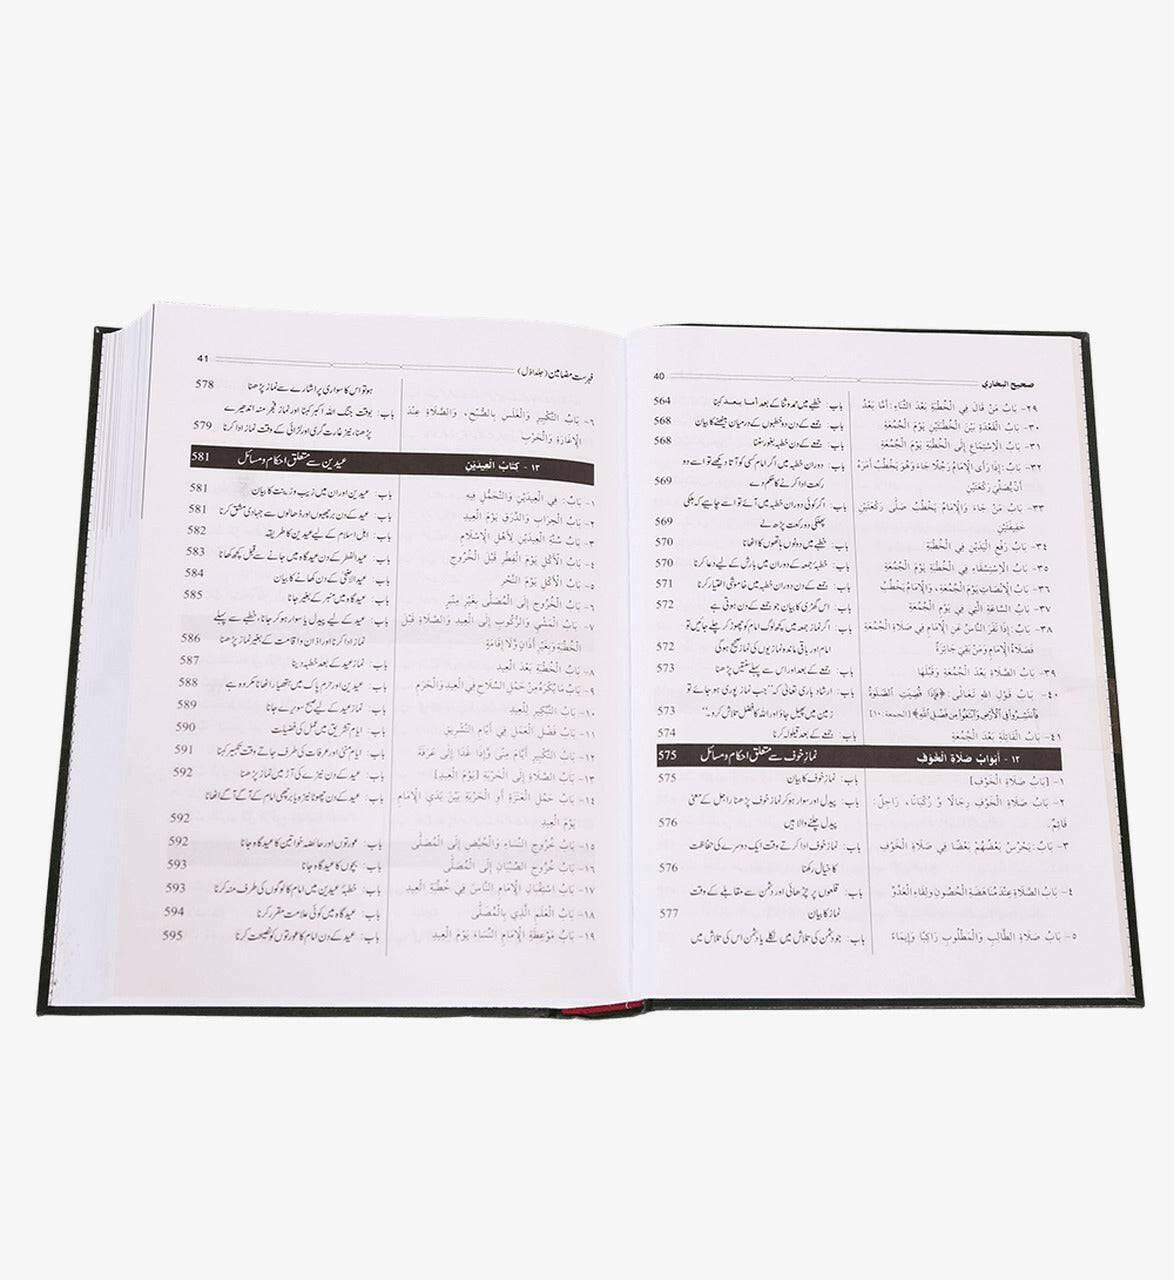 صحيح البخاري 40
٢٩- بَابُ مَنْ قَالَ فِي الْخُطْبَةِ بَعْدَ الثَّنَاءِ: أَمَّا بَعْدُ باب: خطبے میں حمد و ثنا کے بعد أما بعد کہنا 564
٣٠- بَابُ الْقَعْدَةِ بَيْنَ الْخُطْبَتَيْنِ يَوْمَ الْجُمُعَةِ باب: جمعے کے دن دو خطبوں کے درمیان بیٹھنے کا بیان 568
٣١- بَابُ الِاسْتِمَاعِ إِلَى الْخُطْبَةِ يَوْمَ الْجُمُعَةِ باب: جمعے کے دن خطبہ بغور سننا 568
٣٢- بَابٌ: إِذَا رَأَى الْإِمَامُ رَجُلًا جَاءَ وَهُوَ يَخْطُبُ أَمَرَهُ باب: دوران خطبہ میں اگر امام کسی کو آتا دیکھے تو اسے دو
أَنْ يُصَلِّيَ رَكْعَتَيْنِ رکعت ادا کرنے کا حکم دے 569
٣٣- بَابُ مَنْ جَاءَ وَالْإِمَامُ يَخْطُبُ صَلَّى رَكْعَتَيْنِ باب: اگر کوئی دوران خطبہ میں آئے تو اسے چاہیے کہ ہلکی
خَفِيفَتَيْنِ پھلکی دو رکعت پڑھ لے 569
٣٤- بَابُ رَفْعِ الْيَدَيْنِ فِي الْخُطْبَةِ باب: خطبے میں دونوں ہاتھوں کا اٹھانا 570
٣٥- بَابُ الِاسْتِسْقَاءِ فِي الْخُطْبَةِ يَوْمَ الْجُمُعَةِ باب: خطبۂ جمعہ کے دوران میں بارش کے لیے دعا کرنا 570
٣٦- بَابُ الْإِنْصَاتِ يَوْمَ الْجُمُعَةِ، وَالْإِمَامُ يَخْطُبُ باب: جمعے کے دن دوران خطبہ میں خاموشی اختیار کرنا 571
٣٧- بَابُ السَّاعَةِ الَّتِي فِي يَوْمِ الْجُمُعَةِ باب: اس گھڑی کا بیان جو جمعے کے دن ہوتی ہے 572
٣٨- بَابٌ: إِذَا نَفَرَ النَّاسُ عَنِ الْإِمَامِ فِي صَلَاةِ الْجُمُعَةِ باب: اگر نماز جمعہ میں کچھ لوگ امام کو چھوڑ کر چلے جائیں تو
فَصَلَاةُ الْإِمَامِ وَمَنْ بَقِيَ جَائِزَةٌ امام اور باقی ماندہ نمازیوں کی نماز صحیح ہوگی 572
٣٩- بَابُ الصَّلَاةِ بَعْدَ الْجُمُعَةِ وَقَبْلَهَا باب: جمعے کے بعد اور اس سے پہلے سنتیں پڑھنا 573
٤٠- بَابُ قَوْلِ اللهِ تَعَالَى: ﴿فَإِذَا قُضِيَتِ ٱلصَّلَوٰةُ باب: ارشاد باری تعالیٰ کہ ”جب نماز پوری ہو جائے تو
فَٱنتَشِرُوا۟ فِى ٱلْأَرْضِ وَٱبْتَغُوا۟ مِن فَضْلِ ٱللَّهِ﴾ [الجمعة: ١٠] زمین میں پھیل جاؤ اور اللہ کا فضل تلاش کرو۔“ 573
٤١- بَابُ الْقَائِلَةِ بَعْدَ الْجُمُعَةِ باب: جمعے کے بعد قیلولہ کرنا 574
١٢- أَبْوَابُ صَلَاةِ الْخَوْفِ نماز خوف سے متعلق احکام و مسائل 575
١- [بَابُ صَلَاةِ الْخَوْفِ] باب: نماز خوف کا بیان 575
٢- بَابُ صَلَاةِ الْخَوْفِ رِجَالًا وَ رُكْبَانًا، رَاجِلٌ: باب: پیدل اور سوار ہو کر نماز خوف پڑھنا راجل کے معنی
قَائِمٌ. پیدل چلنے والا ہیں 576
٣- بَابٌ: يَحْرُسُ بَعْضُهُمْ بَعْضًا فِي صَلَاةِ الْخَوْفِ باب: نماز خوف ادا کرتے وقت ایک دوسرے کی حفاظت
کا خیال رکھنا 576
٤- بَابُ الصَّلَاةِ عِنْدَ مُنَاهَضَةِ الْحُصُونِ وَلِقَاءِ الْعَدُوِّ باب: قلعوں پر چڑھائی اور دشمن سے مقابلے کے وقت
نماز کا بیان 577
٥- بَابُ صَلَاةِ الطَّالِبِ وَالْمَطْلُوبِ رَاكِبًا وَإِيمَاءً باب: جو دشمن کی تلاش میں نکلے یا دشمن اس کی تلاش میں
فہرست مضامین (جلد اول) 41
ہو تو اس کا سواری پر اشارے سے نماز پڑھنا 578
٦- بَابُ التَّكْبِيرِ وَالْغَلَسِ بِالصُّبْحِ، وَالصَّلَاةِ عِنْدَ باب: بوقت جنگ اللہ اکبر کہنا اور نماز فجر منہ اندھیرے
الْإِغَارَةِ وَالْحَرْبِ پڑھنا، نیز غارت گری اور لڑائی کے وقت نماز ادا کرنا 579
١٣- كِتَابُ الْعِيدَيْنِ عیدین سے متعلق احکام و مسائل 581
١- بَابٌ: فِي الْعِيدَيْنِ وَالتَّجَمُّلِ فِيهِ باب: عیدین اور ان میں زیب و زینت کا بیان 581
٢- بَابُ الْحِرَابِ وَالدَّرَقِ يَوْمَ الْعِيدِ باب: عید کے دن برچھیوں اور ڈھالوں سے جہادی مشق کرنا 581
٣- بَابُ سُنَّةِ الْعِيدَيْنِ لِأَهْلِ الْإِسْلَامِ باب: اہل اسلام کے لیے عیدین کا طریقہ 582
٤- بَابُ الْأَكْلِ يَوْمَ الْفِطْرِ قَبْلَ الْخُرُوجِ باب: عیدالفطر کے دن عید گاہ میں جانے سے قبل کچھ کھانا 583
٥- بَابُ الْأَكْلِ يَوْمَ النَّحْرِ باب: عیدالاضحیٰ کے دن کھانے کا بیان 584
٦- بَابُ الْخُرُوجِ إِلَى الْمُصَلَّى بِغَيْرِ مِنْبَرٍ باب: عید گاہ میں منبر کے بغیر جانا 585
٧- بَابُ الْمَشْيِ وَالرُّكُوبِ إِلَى الْعِيدِ وَالصَّلَاةِ قَبْلَ باب: عید کے لیے پیدل یا سوار ہو کر جانا، خطبے سے پہلے
الْخُطْبَةِ وَبِغَيْرِ أَذَانٍ وَلَا إِقَامَةٍ نماز ادا کرنا اور اذان و اقامت کے بغیر نماز پڑھنا 586
٨- بَابُ الْخُطْبَةِ بَعْدَ الْعِيدِ باب: نماز عید کے بعد خطبہ دینا 587
٩- بَابُ مَا يُكْرَهُ مِنْ حَمْلِ السِّلَاحِ فِي الْعِيدِ وَالْحَرَمِ باب: عیدین اور حرم پاک میں ہتھیار اٹھانا مکروہ ہے 588
١٠- بَابُ التَّبْكِيرِ لِلْعِيدِ باب: نماز عید کے لیے صبح سویرے جانا 589
١١- بَابُ فَضْلِ الْعَمَلِ فِي أَيَّامِ التَّشْرِيقِ باب: ایام تشریق میں عمل کی فضیلت 590
١٢- بَابُ التَّكْبِيرِ أَيَّامَ مِنًى وَإِذَا غَدَا إِلَى عَرَفَةَ باب: ایام منیٰ اور عرفات کی طرف جاتے وقت تکبیر کہنا 591
١٣- بَابُ الصَّلَاةِ إِلَى الْحَرْبَةِ [يَوْمَ الْعِيدِ] باب: عید کے دن نیزے کی آڑ میں نماز پڑھنا 592
١٤- بَابُ حَمْلِ الْعَنَزَةِ أَوِ الْحَرْبَةِ بَيْنَ يَدَيِ الْإِمَامِ باب: عید کے دن چھوٹا نیزہ یا برچھی امام کے آگے آگے اٹھانا
يَوْمَ الْعِيدِ 592
١٥- بَابُ خُرُوجِ النِّسَاءِ وَالْحُيَّضِ إِلَى الْمُصَلَّى باب: عورتوں اور حائضہ خواتین کا عید گاہ جانا 592
١٦- بَابُ خُرُوجِ الصِّبْيَانِ إِلَى الْمُصَلَّى باب: بچوں کا عید گاہ جانا 593
١٧- بَابُ اسْتِقْبَالِ الْإِمَامِ النَّاسَ فِي خُطْبَةِ الْعِيدِ باب: خطبۂ عیدین میں امام کا لوگوں کی طرف منہ کرنا 593
١٨- بَابُ الْعَلَمِ الَّذِي بِالْمُصَلَّى باب: عید گاہ میں کوئی علامت مقرر کرنا 594
١٩- بَابُ مَوْعِظَةِ الْإِمَامِ النِّسَاءَ يَوْمَ الْعِيدِ باب: عید کے دن امام کا عورتوں کو نصیحت کرنا 595